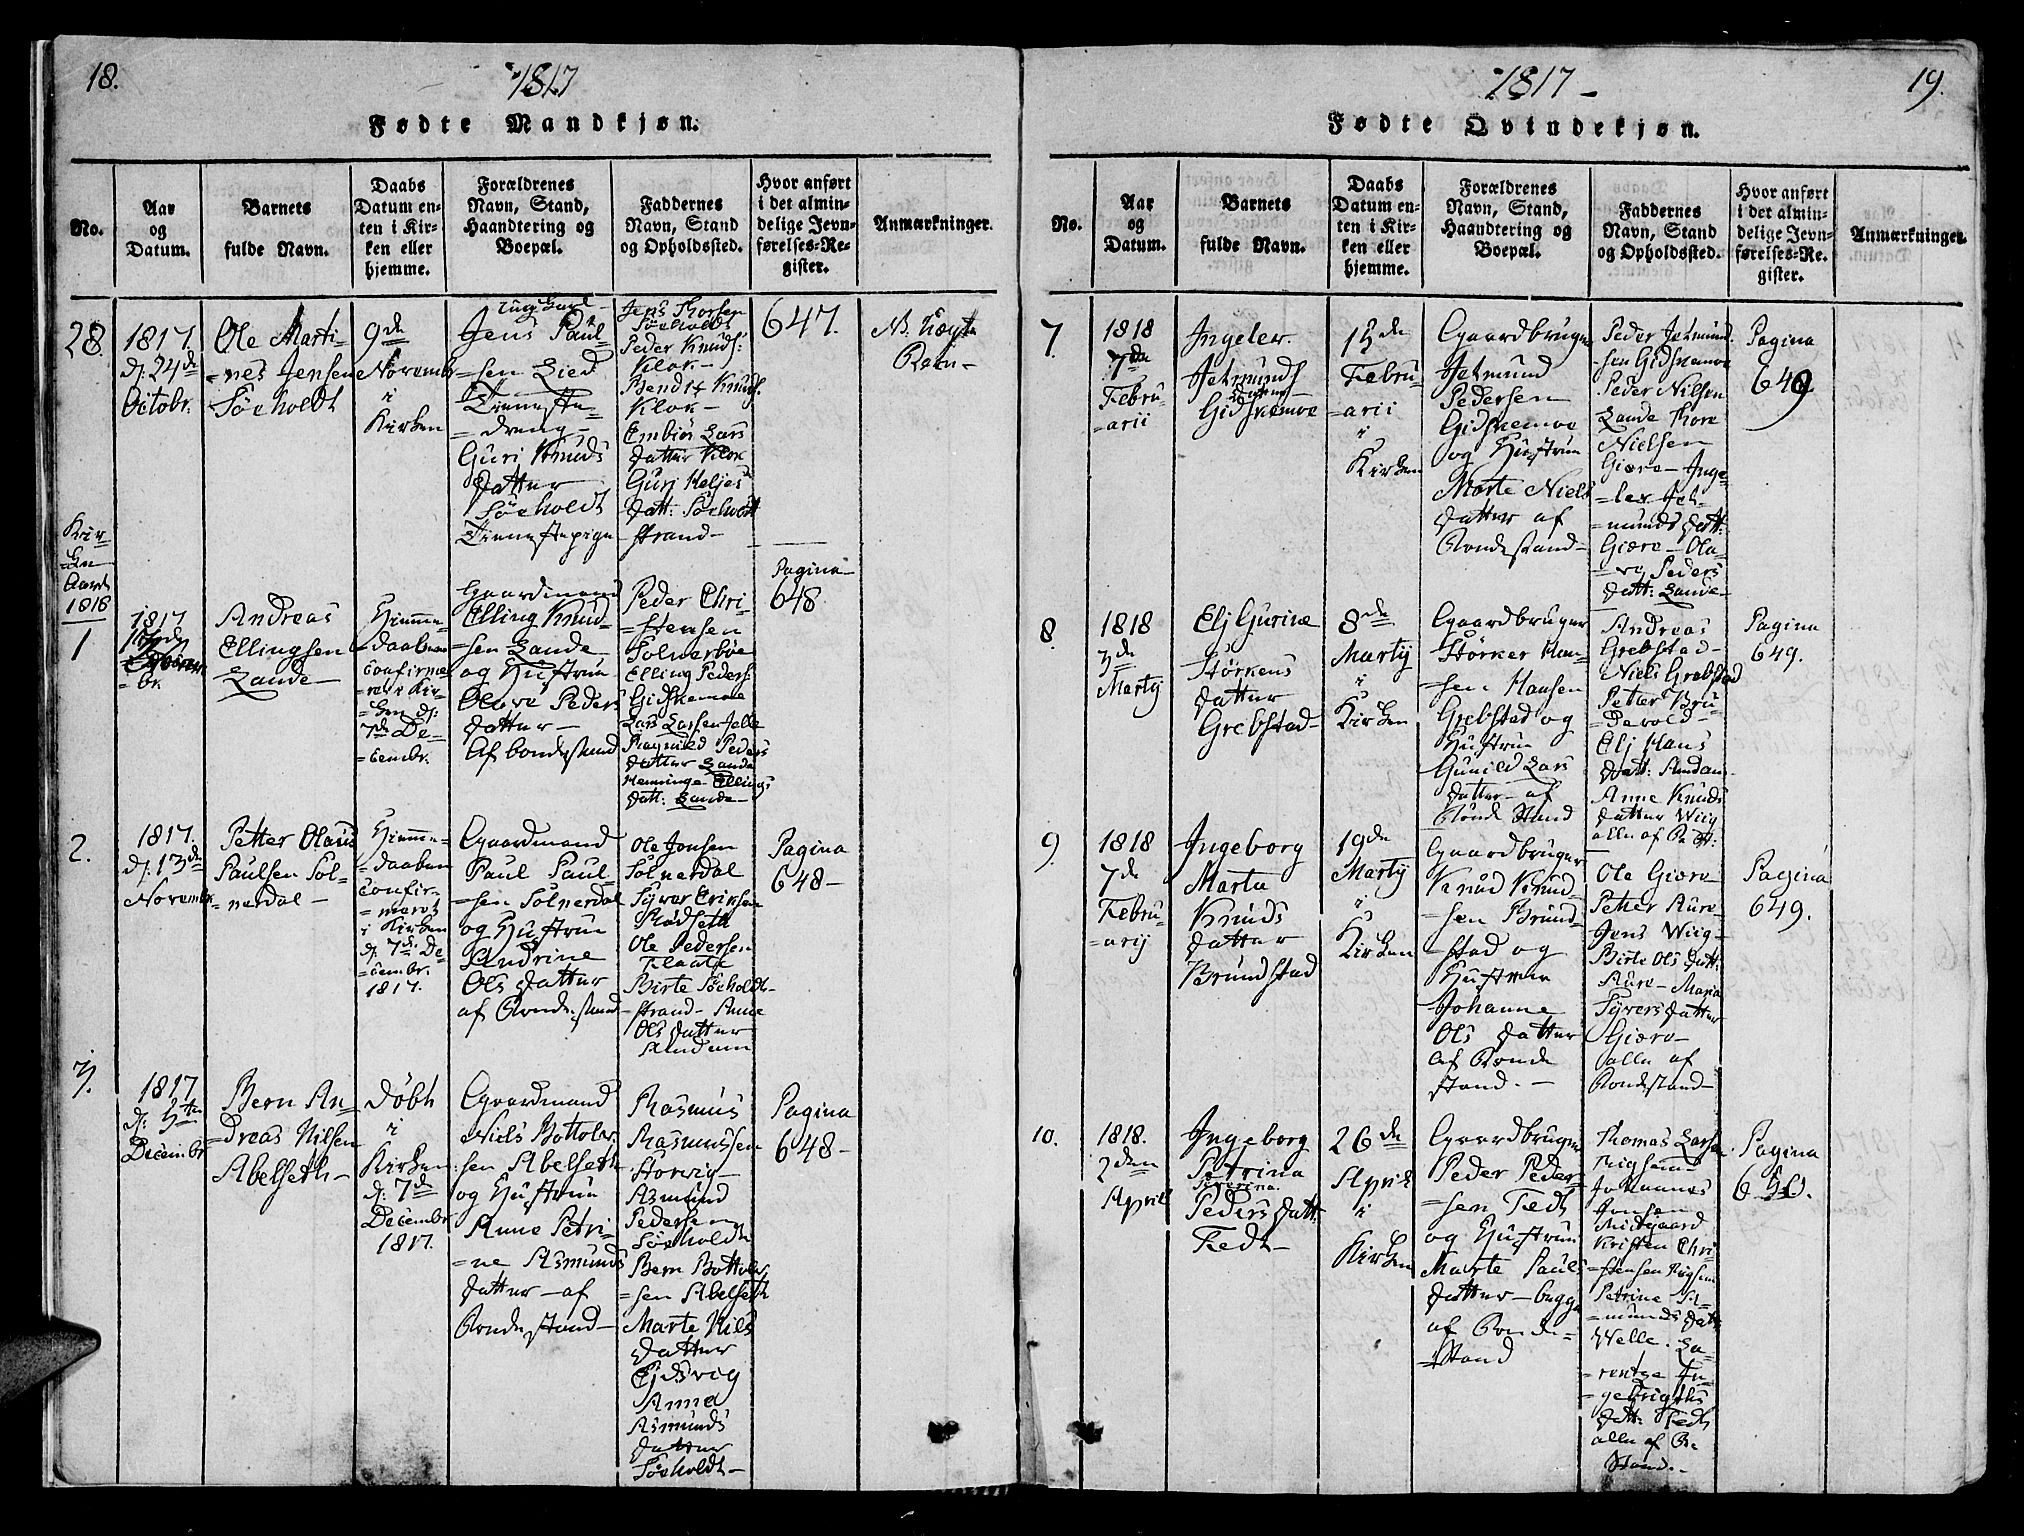 18.
1817
Fødte Mandkjøn.
No.
Aar
og
Datum.
Barnets
fulde Navn.
Daabs
Datum en-
ten i Kir-
ken eller
hjemme.
Forældrenes
Navn, Stand,
Haandtering og
Boepæl.
Faddernes
Navn, Stand
og Opholdssted.
Hvor anført
i det almin-
delige Jevn-
førelses-Re-
gister.
Anmærkninger.
28.
1817.
d: 24de
Octobr.
Ole Marti-
=nes Jensen
Söeholdt
9de
Novembr
i
Kirken
Jens Paul-
=sen Lied
Tienneste-
=dreng-
Guri Knuds
Datter
Söeholdt
Tiennestepige
Jens Thorsen
Söeholdt
Peder Knuds:
Klok-
Bendix Knuds:
Klok-
Embiör Lars
datter Klok
Guri Keljes
Datt: Söeholdt
strand-
647.
Kir-
=ken
Aaret
1818
1
1817
Andreas
Ellingsen
Lande-
Hiemme-
=daaben
Confirme
=ret i Kir-
=ken d:
7de De-
=cembr.
Gaardmand
Elling Knud-
=sen Lande
og Hustrue
Olave Peders
datter-
Af bondestand
Peder Chri-
=stensen
Solnerböe
Elling Peders:
Gidskemoe
Lars Larsen Jelle
Ragnild Peders
datter Lande
Henninge Ellings
Datt: Lande-
Pagina-
648.
2.
1817.
d: 13de
Novembr.
Petter Olaus
Paulsen Sol-
=nerdal-
Hiemme-
=daaben
Confir-
=meret
i Kirken
d: 7de De-
=cembr.
1817.
Gaardmand
Paul Paul-
=sen Solnerdal
og Hustrue
Andrine
Ols datter
af Bondestand
Ole Jonsen
Solnerdal
Syver Eriksen
Rödseth
Ole Pedersen
Flaate
Birte Söeholdt-
=strand- Anne
Ols datter
Amdam
Pagina
648-
3.
1817.
d: 3die
Decembr
Bern An-
=dreas Nilsen
Abelseth-
Döbt
i
Kirken
d: 7de
Decembr
1817.
Gaardmand
Niels Bottolv-
sen Abelseth
og Hustrue
Anne Petri-
=ne Asmunds
datter- af
Bondestand-
Rasmus
Rasmussen
Storvig-
Asmund
Pedersen
Söeholdt
Bern Bottolv
=sen Abelseth
Marte Nils
datter
Ejdsvig
Anne
Asmunds
datter
Söeholdt-
Pagina
648-
19.
1817-
Fødte Qvindekjøn.
No.
Aar
og
Datum.
Barnets
fulde Navn.
Daabs
Datum en-
ten i Kir-
ken eller
hjemme.
Forældrenes
Navn, Stand,
Haandtering og
Boepæl.
Faddernes
Navn, Stand
og Opholdssted.
Hvor anført
i det almin-
delige Jevn-
førelses-Re-
gister.
Anmærkninger.
7.
1818
7de
Febru-
=arii
Ingeler
Jetmunds
Datter
Gidskemoe
15de
Febru-
=arii
i
Kirken
Gaardbruger
Jetmund
Pedersen
Gidskemoe
og Hustrue
Marte Niels
datter af
Bondestand-
Peder Jetmund-
=sen Gidskemoe
Peder Nilsen
Lande Thore
Nielsen
Giære- Inge-
=ler Jet-
=munds Datt:
Giære- Ola-
=ve Peders
Datt: Lande-
Pagina
649
8
1818
3de
Martij
Elj Gurine
Störkers
datter
Grebstad-
8de
Martij
i
Kirken
Gaardbruger
Störker Han-
=sen Hansen
Grebstad og
Hustrue
Gunild Lars
datter- af
Bonde Stand
Andreas
Grebstad-
Niels Grebstad
Petter Bru-
=devold-
Elj Hans
Datt: Amdam-
Anne Knuds
datter Wiig
alle af
Pagina
649.
9.
1818
7de
Febru-
=arij
Ingeborg
Marta
Knuds
datter
Brundstad
19de
Martij
i
Kirken
Gaardbruger
Knud Knud-
=sen Brund-
=stad og
Hustrue
Johanne
Ols datter
af Bonde
stand.-
Ole Giære-
Petter Aure-
Jens Wiig-
Birte Ols Datt:
Aure- Maria
Syvers datter
Giære-
alle af
Bondestand-
Pagina
649.
10.
1818.
2den
April
Ingeborg
Petrina
Severina
Peders Datt:
Fedt-
26de
April
i
Kirken
Gaardbruger
Peder Peder-
=sen Fedt
og Hustrue
Marte Pauls
datter- begge
af Bonde-
=Stand
Thomas Larsen
Johannes
Jonsen
Midgaard
Kristen Chri-
=stensen
Petrine A-
=munds Datt:
Welle. La-
=rentze In-
=gebrigts
Datt: Fedt
alle af Bo
Stand.-
Pagina
650.